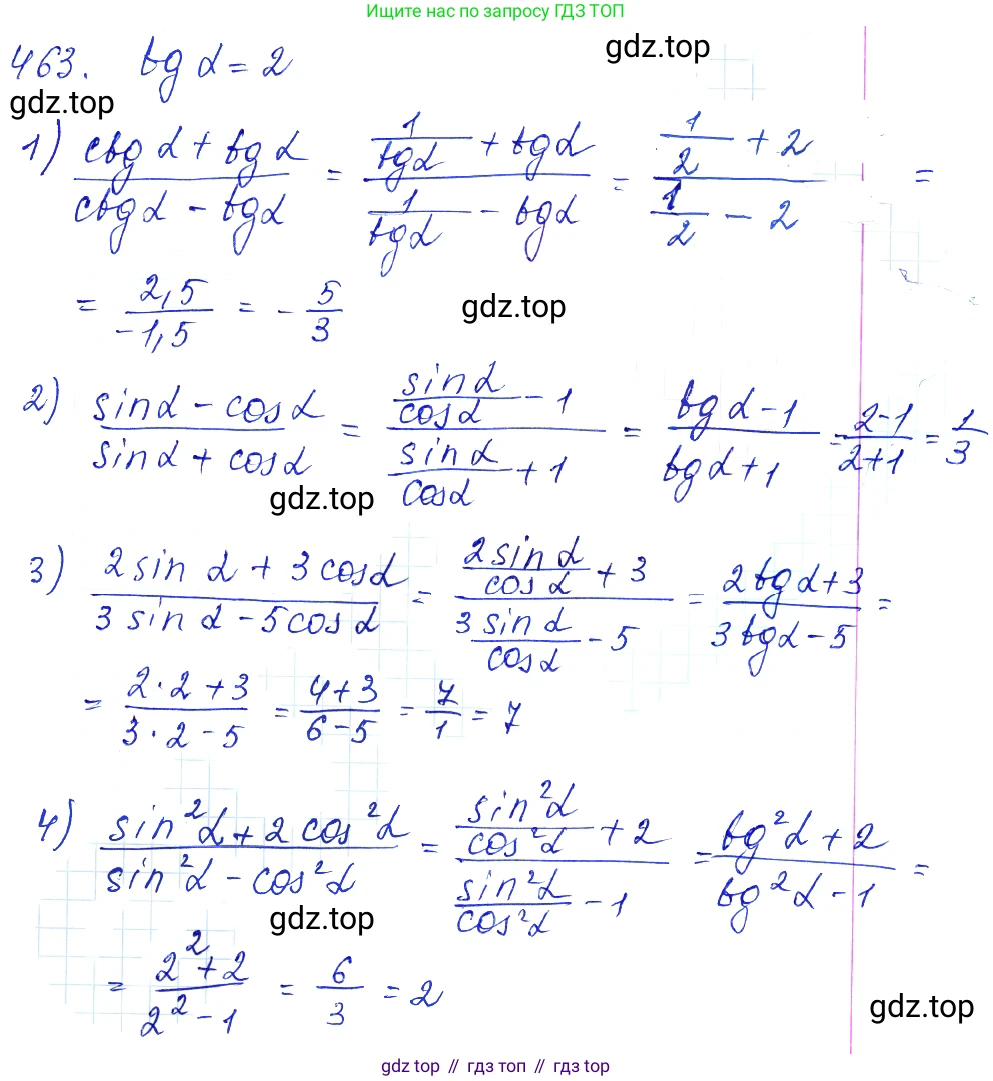 Ищите нас по запросу ГДЗ ТОП
463. tg α = 2
gdz.top
gdz.top
1) (ctg α + tg α)/(ctg α - tg α) = (1/tg α + tg α)/(1/tg α - tg α) = (1/2 + 2)/(1/2 - 2) =
= 2,5/-1,5 = - 5/3
gdz.top
2) (sin α - cos α)/(sin α + cos α) = (sin α/cos α - 1)/(sin α/cos α + 1) = (tg α - 1)/(tg α + 1) = (2-1)/(2+1) = 1/3
gdz.top
3) (2 sin α + 3 cos α)/(3 sin α - 5 cos α) = (2 sin α/cos α + 3)/(3 sin α/cos α - 5) = (2 tg α + 3)/(3 tg α - 5) =
= (2·2 + 3)/(3·2 - 5) = (4+3)/(6-5) = 7/1 = 7
4) (sin²α + 2 cos²α)/(sin²α - cos²α) = (sin²α/cos²α + 2)/(sin²α/cos²α - 1) = (tg²α + 2)/(tg²α - 1) =
gdz.top
= (2² + 2)/(2² - 1) = 6/3 = 2
gdz.top
gdz top // гдз топ // gdz top // гдз топ